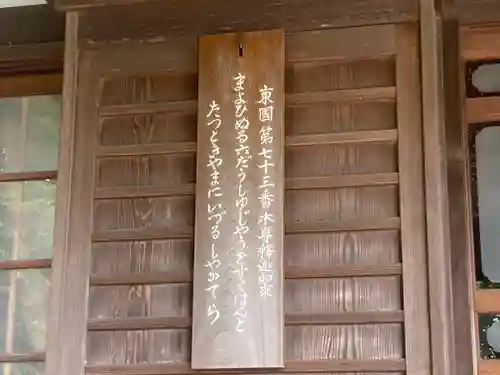 東国第七十三番本尊釈迦如来
まよひぬる六だうしゆじやうをすくはんと
たつときやまにいづるしやかでら